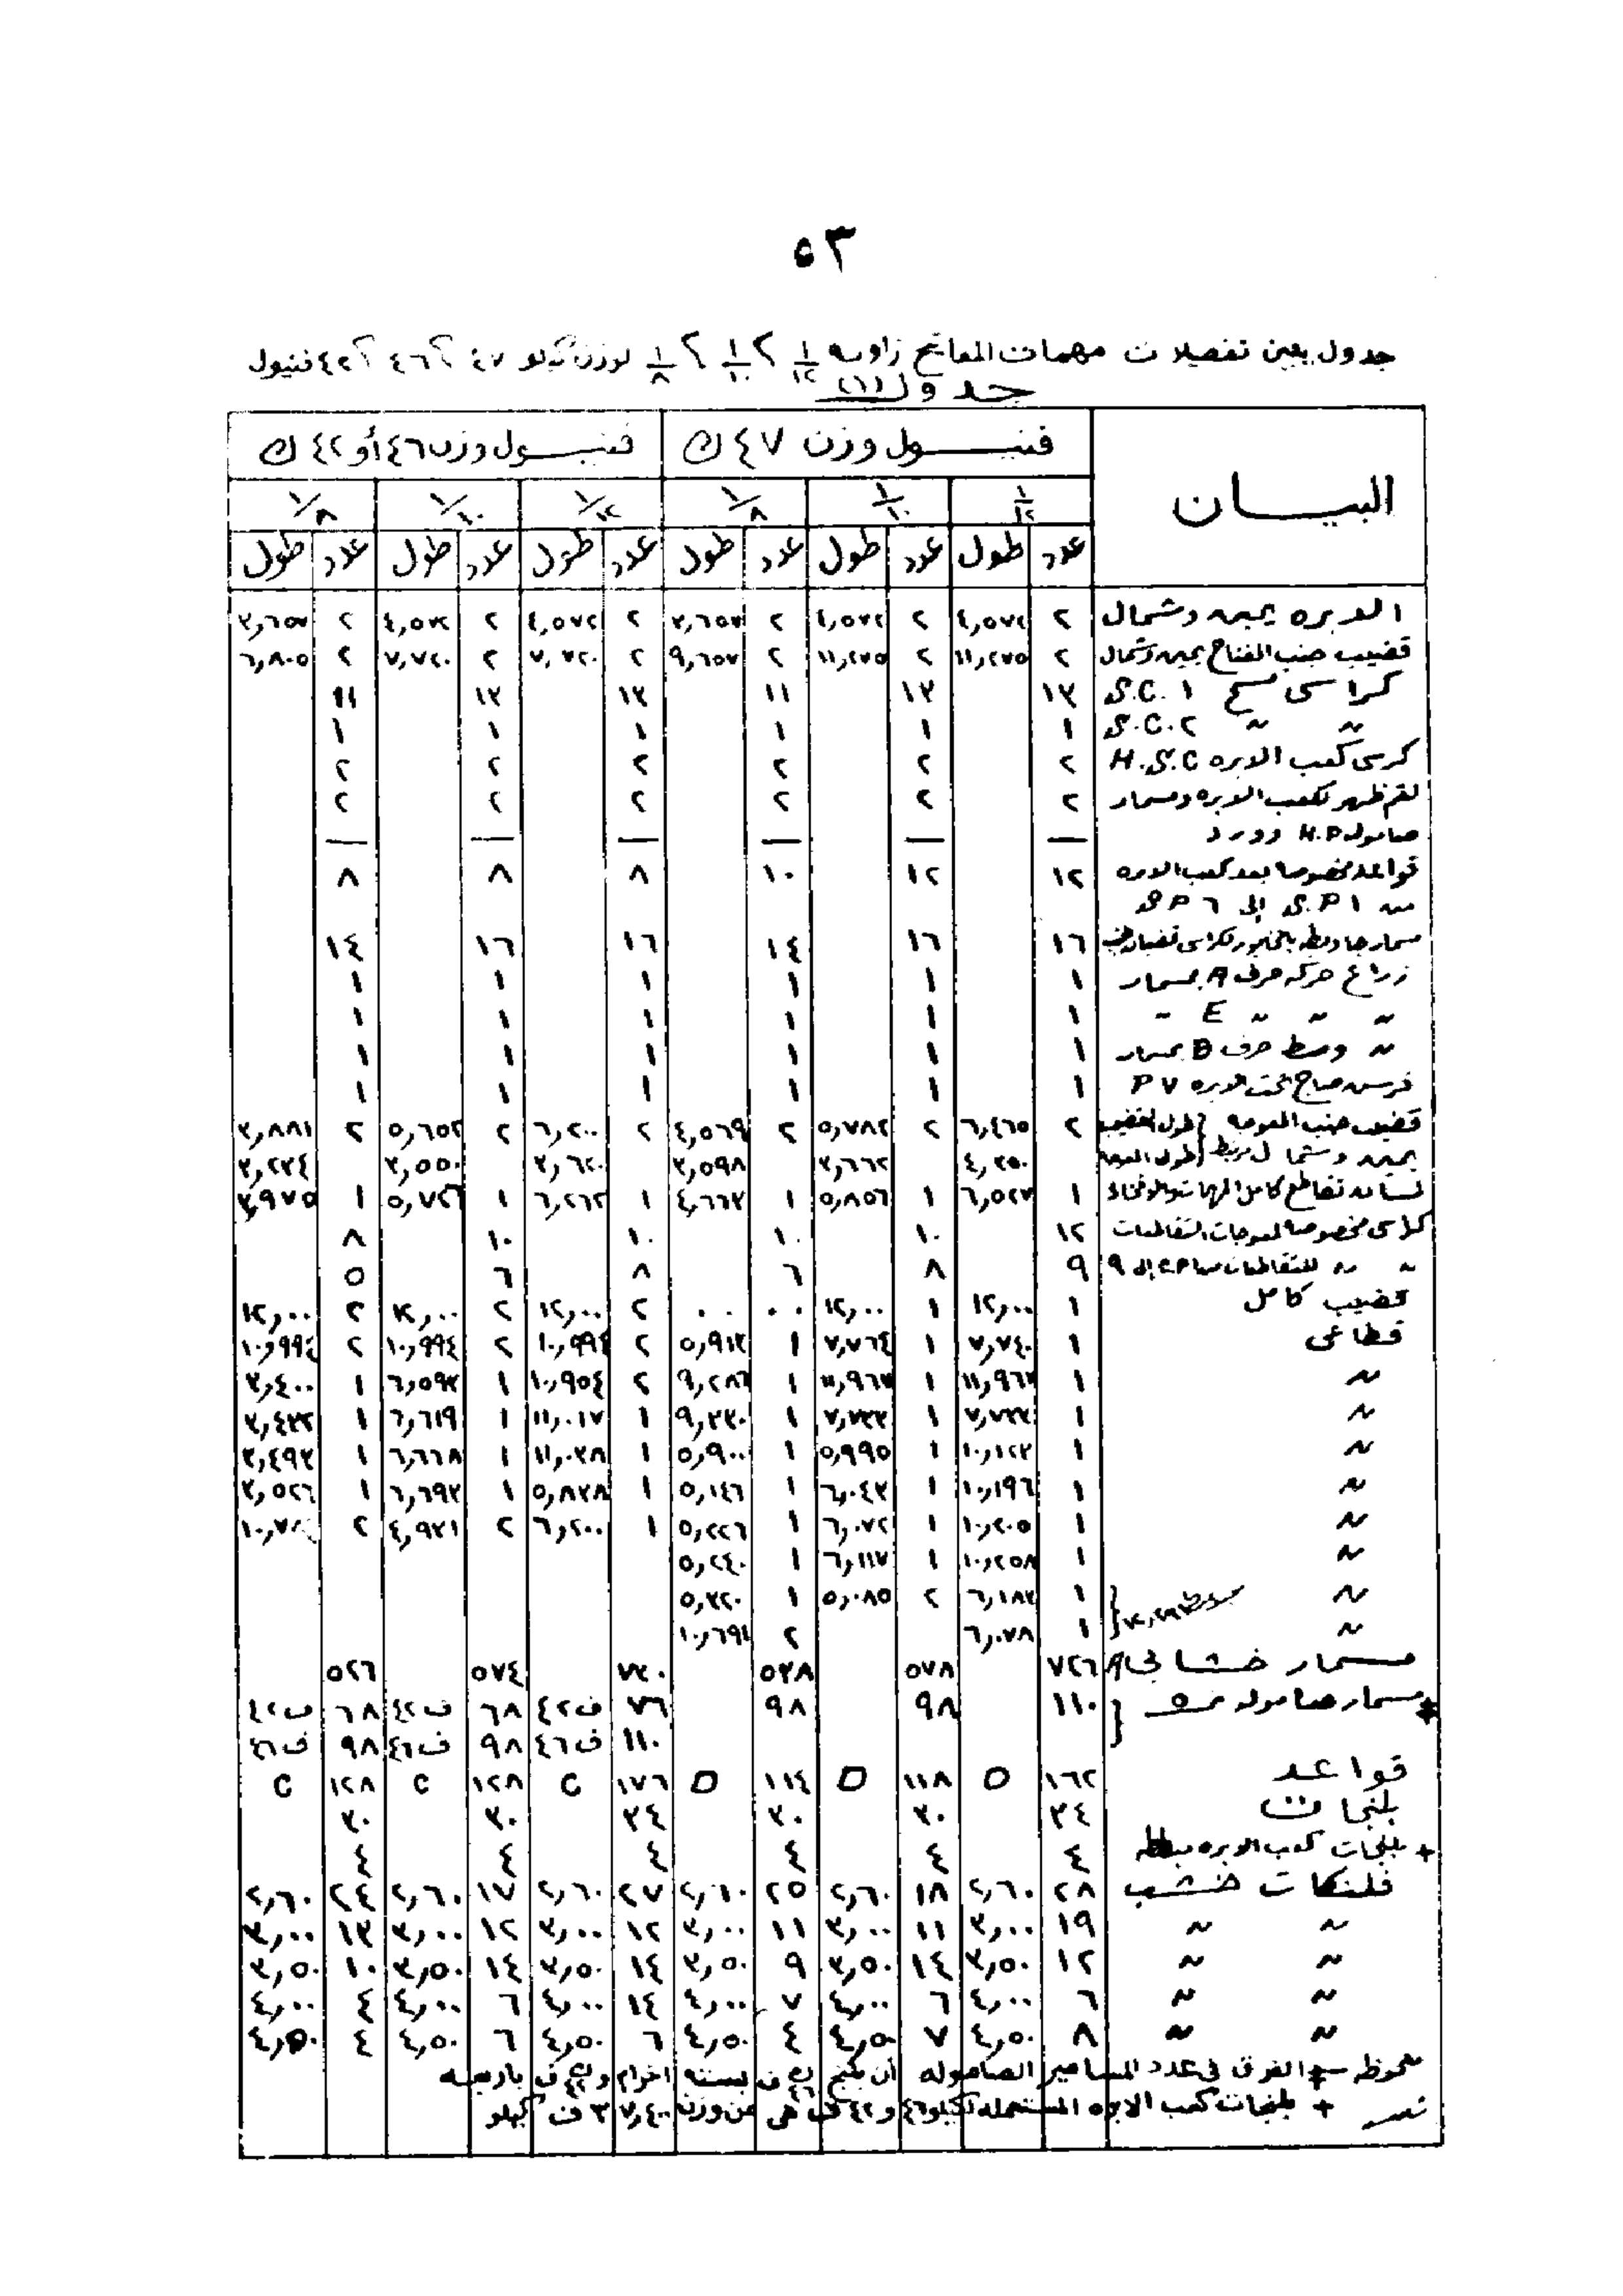 ٥٣
جدول يبين تفصيلات مهمات المفاتيح زاوية ١/١٢ ، ١/١٠ ، ١/٨ لوزن كيلو ٤٧ ، ٤٦ ، ٤٢ فنيول
جدول (١)
البيان فنيول وزن ٤٧ ك فنيول وزن ٤٦ أو ٤٢ ك
١/١٢ ١/١٠ ١/٨ ١/١٢ ١/١٠ ١/٨
عدد طول عدد طول عدد طول عدد طول عدد طول عدد طول
الابره يمين وشمال ٢ ٤,٥٧٢ ٢ ٤,٥٧٢ ٢ ٣,٦٥٧ ٢ ٤,٥٧٢ ٢ ٤,٥٧٢ ٢ ٣,٦٥٧
قضيب جنب المفتاح يمين وشمال ٢ ١١,٢٧٥ ٢ ١١,٢٧٥ ٢ ٩,٦٥٧ ٢ ٧,٧٢٠ ٢ ٧,٧٢٠ ٢ ٦,٨٠٥
كراسى مسح S.C. ١ ١٣ ١٣ ١١ ١٣ ١٣ ١١
〃 〃 S.C. ٢ ١ ١ ١ ١ ١ ١
كرسى كعب الابره H.S.C ٢ ٢ ٢ ٢ ٢ ٢
لقم ظهر لكعب الابره ومسمار ٢ ٢ ٢ ٢ ٢ ٢
صاموله H.P وورد — — — — — —
قواعد مخصوصا بعد كعب الابره ١٢ ١٢ ١٠ ٨ ٨ ٨
من S.P ١ الى S P ٦
مسمار ١٦ ١٦ ١٤ ١٦ ١٦ ١٤
زراع حركه حرف A بمسمار ١ ١ ١ ١ ١ ١
〃 〃 〃 E 〃 ١ ١ ١ ١ ١ ١
〃 وسط حرف B بمسمار ١ ١ ١ ١ ١ ١
فرش صاج تحت الابره P ٧ ١ ١ ١ ١ ١ ١
قضيب جنب المعوجه طول القضيب ٢ ٦,٤٦٥ ٢ ٥,٧٨٢ ٢ ٤,٥٦٩ ٢ ٦,٢٠٠ ٢ ٥,٦٥٢ ٢ ٣,٨٨١
يمين وشمال مربط طول المعوجه ٤,٢٥٠ ٣,٦٦٢ ٣,٥٩٨ ٣,٦٢٠ ٣,٥٥٠ ٣,٢٣٤
لسانه تقاطع كامل المهمات ١ ٦,٥٢٧ ١ ٥,٨٥٦ ١ ٤,٦٦٣ ١ ٦,٢٦٢ ١ ٥,٧٢٦ ١ ٣,٩٧٥
كراسى مخصوصه لمعوجات التقاطعات ١٢ ١٠ ١٠ ١٠ ١٠ ٨
〃 〃 للتقاطعات الى ٩ ٩ ٨ ٦ ٨ ٦ ٥
قضيب كامل ١ ١٢,٠٠٠ ١ ١٢,٠٠٠ ٠٠ ٠٠ ٢ ١٢,٠٠٠ ٢ ١٢,٠٠٠ ٢ ١٢,٠٠٠
قطاعى ١ ٧,٧٤٠ ١ ٧,٧٦٤ ١ ٥,٩١٣ ٢ ١٠,٩٩٤ ٢ ١٠,٩٩٤ ٢ ١٠,٩٩٤
〃 ١ ١١,٩٦٣ ١ ١١,٩٦٣ ١ ٩,٢٨٦ ٢ ١٠,٩٥٤ ١ ٦,٥٩٣ ١ ٣,٤٠٠
〃 ١ ٧,٧٣٣ ١ ٧,٧٣٣ ١ ٩,٣٣٠ ١ ١١,٠١٧ ١ ٦,٦١٩ ١ ٣,٤٣٢
〃 ١ ١٠,١٢٣ ١ ٥,٩٩٥ ١ ٥,٩٠٠ ١ ١١,٠٣٨ ١ ٦,٦٦٨ ١ ٣,٤٩٣
〃 ١ ١٠,١٩٦ ١ ٦,٠٤٣ ١ ٥,١٤٦ ١ ٥,٨٣٨ ١ ٦,٦٩٣ ١ ٣,٥٢٦
〃 ١ ١٠,٢٠٥ ١ ٦,٠٧٢ ١ ٥,٢٢٦ ١ ٦,٢٠٠ ٢ ٤,٩٣١ ٢
〃 ١ ١٠,٢٥٨ ١ ٦,١١٧ ١ ٥,٢٤٠
〃 ١ ٦,١٨٣ ٢ ٥,٠٨٥ ١ ٥,٣٢٠
〃 ١ ٦,٠٧٨ ٢ ١٠,٦٩١
مسمار خشابى A ٧٢٦ ٥٧٨ ٥٣٨ ٧٣٠ ٥٧٤ ٥٢٦
‡ مسمار صاموله ١١٠ ٩٨ ٩٨ ٧٦ ف٤٢ ٦٨ ف٤٢ ٦٨ ف٤٢
١١٠ ف٤٦ ٩٨ ف٤٦ ٩٨ ف٤٦
قواعد ١٦٢ D ١١٨ D ١١٤ D ١٧٦ C ١٢٨ C ١٢٨ C
بلنجات ٣٤ ٣٠ ٣٠ ٣٤ ٣٠ ٣٠
+ بلنجات كعب الابره ٤ ٤ ٤ ٤ ٤ ٤
فلنكات خشب ٢٨ ٢,٦٠ ١٨ ٢,٦٠ ٢٥ ٢,٦٠ ٢٧ ٢,٦٠ ١٧ ٢,٦٠ ٢٤ ٢,٦٠
〃 〃 ١٩ ٣,٠٠ ١١ ٣,٠٠ ١١ ٣,٠٠ ١٢ ٣,٠٠ ١٢ ٣,٠٠ ١٣ ٣,٠٠
〃 〃 ١٢ ٣,٥٠ ١٤ ٣,٥٠ ٩ ٣,٥٠ ١٤ ٣,٥٠ ١٤ ٣,٥٠ ١٠ ٣,٥٠
〃 〃 ٦ ٤,٠٠ ٦ ٤,٠٠ ٧ ٤,٠٠ ١٤ ٤,٠٠ ٦ ٤,٠٠ ٤ ٤,٠٠
〃 〃 ٨ ٤,٥٠ ٧ ٤,٥٠ ٤ ٤,٥٠ ٦ ٤,٥٠ ٦ ٤,٥٠ ٤ ٤,٥٠
ملحوظه — ‡ الفرق فى عدد المسامير الصاموله أن بلنج ٤٦ ف بسته اخرام و ٤٢ ف باربعه
+ بلنجات كعب الابره المستعمله لكيلو ٤٦ و ٤٢ ف هى من وزن ٣٧,٤٠٠ ف كيلو